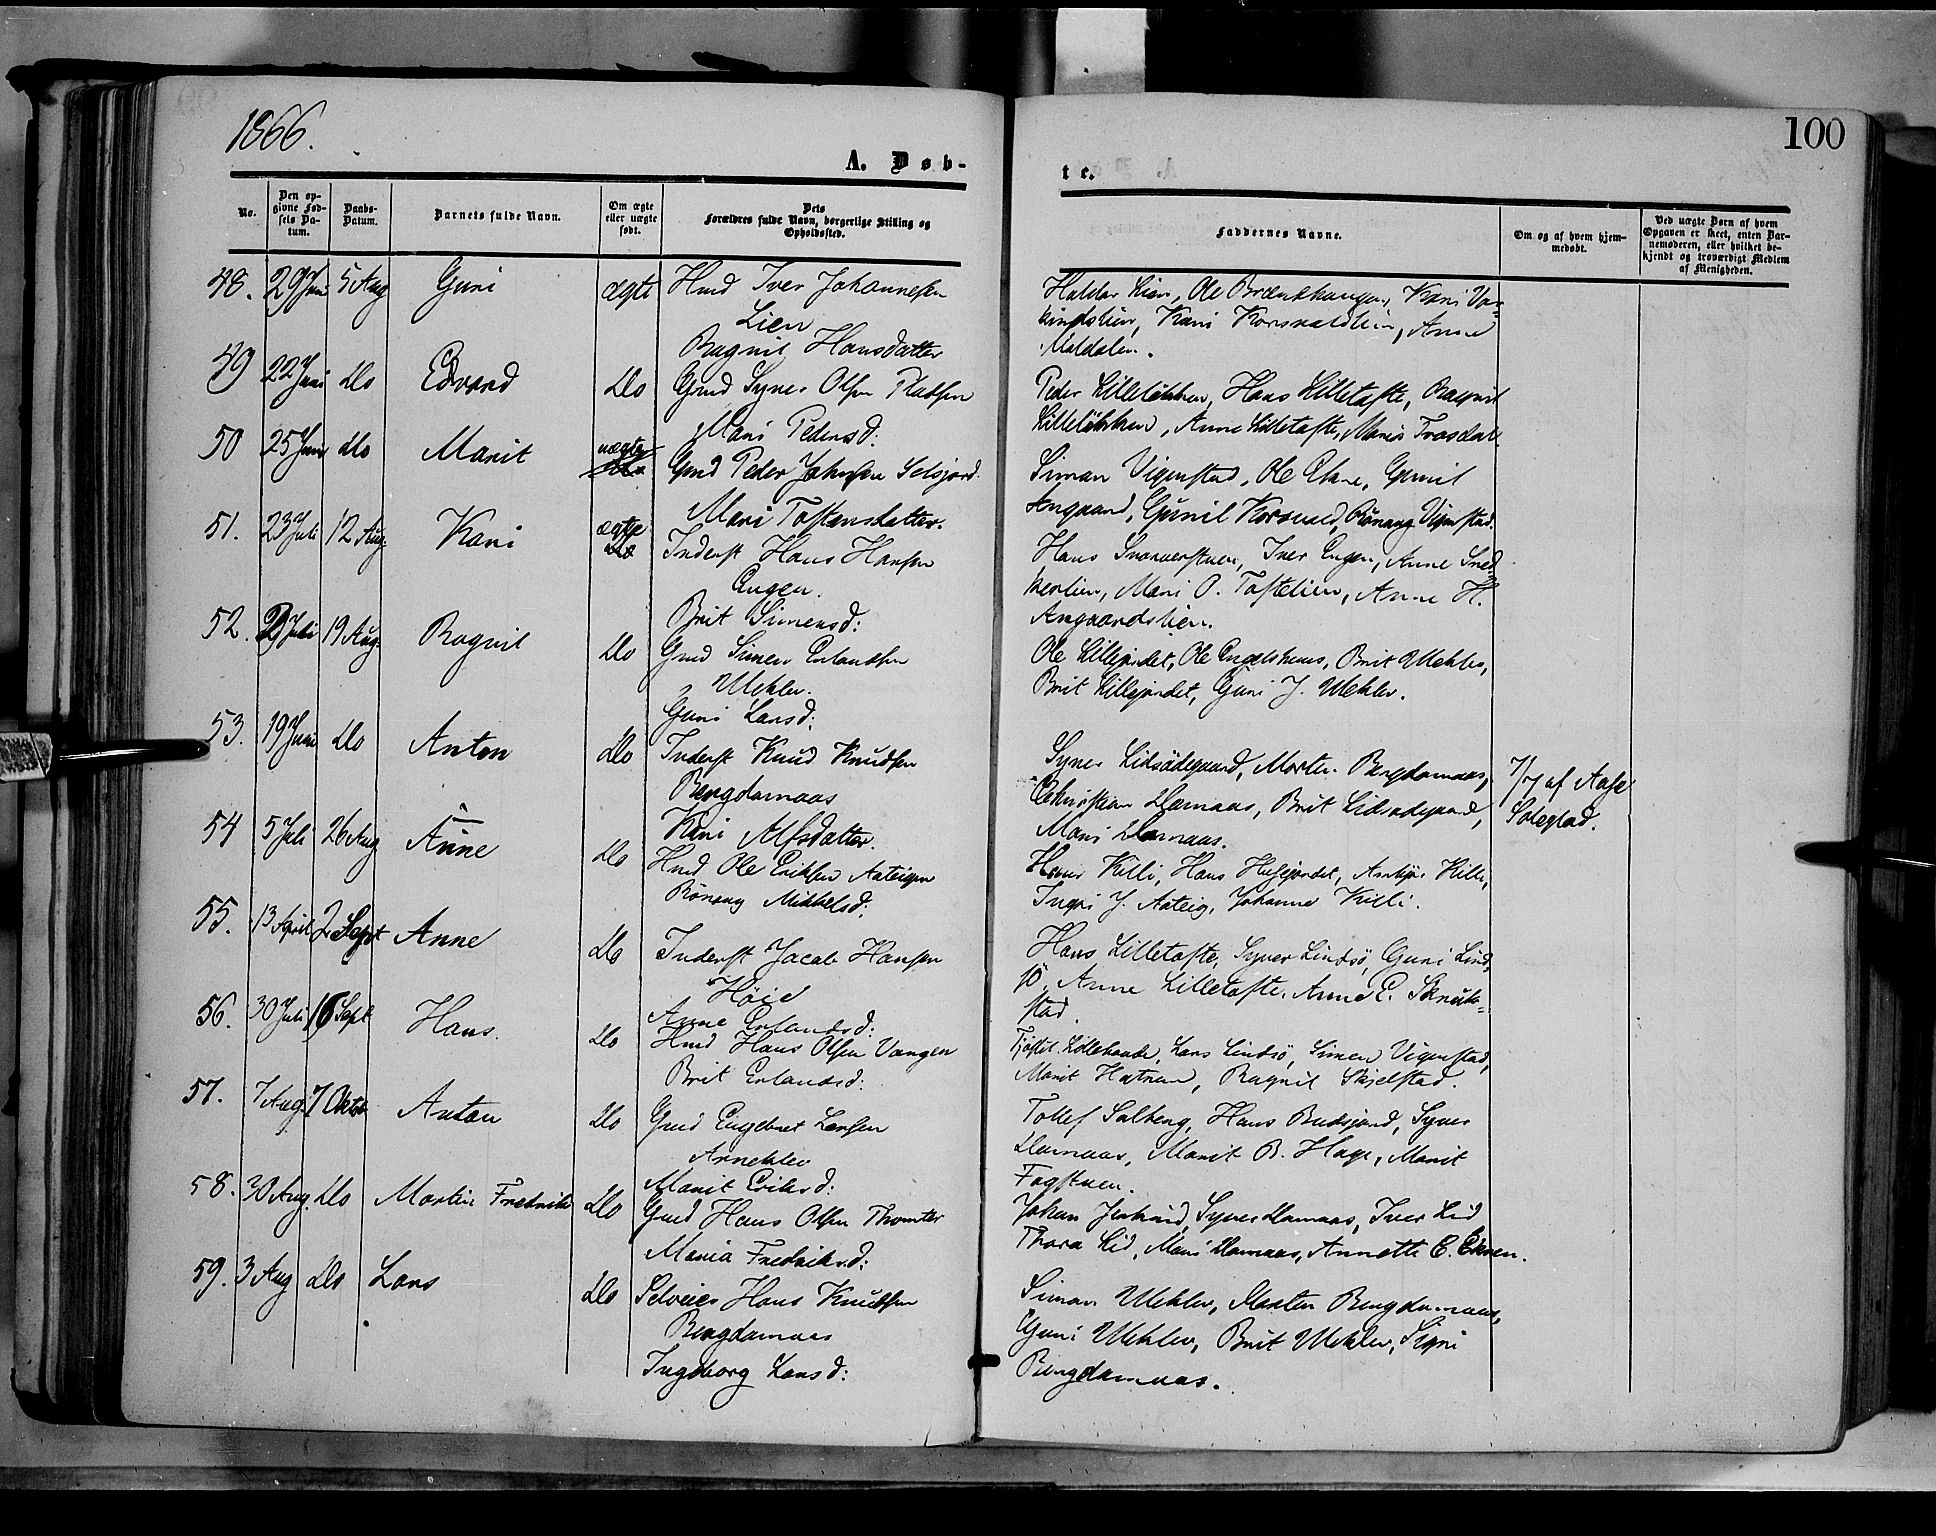 1866.
100
A. Døb-
te.
No.
Den op-
givne Fød-
sels Da-
tum.
Daabs-
Datum.
Barnets fulde Navn.
Om ægte
eller uægte
født.
Dets
Forældres fulde Navn, borgerlige Stilling og
Opholdssted.
Faddernes Navne.
Om og af hvem hjem-
medøbt.
Ved uægte Børn af hvem
Opgaven er skeet, enten Bar-
nemoderen, eller hvilket be-
kjendt og troværdigt Medlem
af Menigheden.
48. 29 Juni 5 Aug Guni ægte Hmd Iver Johannesen
Lien
Ragnil Hansdatter
Haldor Lien, Ole Brændhaugen, Kari
Kari Korsvoldlien, Anne
49 22 Juni do Edvard do Gmd Syver Olsen Pladsen
Mari Pedersd:
Peder Lilleløkken, Hans Lilletofte, Ragnil
Lilleløkken, Anne Lilletofte, Mari
50 25 Juni do Marit uægte Gmd Peder Johnsen Selsjord
Mari Tostensdatter.
Simon Vigenstad, Ole Gunil
Angaard, Gunil Korsvold, Rønnaug Vigenstad.
51. 23 Juli 12 Aug. Kari ægte Inderst Hans Hansen
Engen.
Brit Simensd:
Hans Iver Engen, Anne
Mari O. Toftelien, Anne H.
Angaardslien.
52. Juli 19 Aug. Ragnil do Gmd Simen Erlandsen
Uekler.
Guni Larsd:
Ole Lillejordet, Ole Engelshuus, Brit Uekler,
Brit Lillejordet, Guni J. Uekler.
53. 19 Juni do Anton do Inderst Knud Knudsen
Bergdamaas
Kari Alfsdatter.
Syver Lidsødegaard, Morten Bergdamaas,
Christian Damaas, Brit Lidsødegaard,
Mari Damaas.
7/7 af Aase
Soleglad.
54 5 Juli 26 Aug Anne do Hmd Ole Eriksen Aateigen
Rønnaug Mikkelsd:
Killi, Hans Husejordet, Killi,
Ingri J. Aateig, Johanne Killi.
55. 13 April 2 Sept Anne do Inderst Jacob Hansen
Høie
Anne Erlandsd:
Hans Lilletofte, Syver Lindsø, Guni Lind-
sø, Anne Lilletofte, Anne E.
stad.
56. 30 Juli 16 Sept Hans. do Hmd Hans Olsen Vangen
Brit Erlandsd:
Lars Lindsø, Simen Vigenstad,
Marit Ragnil Skjelstad.
57. 7 Aug. 7 Oktob Anton do Gmd Engebret Larsen
Marit Eriksd:
Tollef Solberg, Hans Budsjord, Syver
Damaas, Marit B. Hage, Marit
Fogstuen.
58. 30 Aug. do Martin Fredrik do Gmd Hans Olsen Thomter
Maria Fredriksd:
Johan Syver Damaas, Iver Lid
Thora Lid, Mari Damaas, Annette C.
59. 3 Aug do Lars do Selveier Hans Knudsen
Bergdamaas
Ingeborg Larsd:
Simon Uekler, Morten Bergdamaas,
Guni Uekler, Brit Uekler, Signi
Bergdamaas.